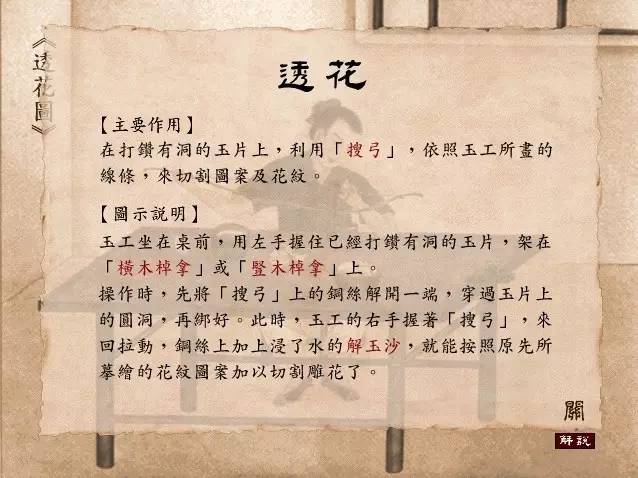 《透花圖》
透花
【主要作用】
在打鑽有洞的玉片上，利用「搜弓」，依照玉工所畫的
線條，來切割圖案及花紋。
【圖示説明】
玉工坐在桌前，用左手握住已經打鑽有洞的玉片，架在
「橫木棹拿」或「豎木棹拿」上。
操作時，先將「搜弓」上的鋼絲解開一端，穿過玉片上
的圓洞，再綁好。此時，玉工的右手握著「搜弓」，來
回拉動，鋼絲上加上浸了水的解玉沙，就能按照原先所
摹繪的花紋圖案加以切割雕花了。
關
解說